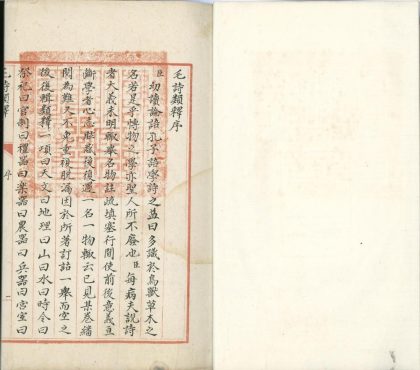 毛詩類釋序
臣幼讀論語孔子語學詩之益曰多識於鳥獸草木之
名若是乎博物之學亦聖人所不廢也臣每病夫説詩
者大義未明輒舉名物註疏填塞行間使前後意義亘
斷學者心志眩惑後復遇一名一物輒云已見某卷繙
閱為難又不免重複脱漏因於所著訂詁一舉而空之
後復輯類釋一項曰天文曰地理曰山曰水曰時令曰
祭祀曰官制曰禮器曰樂器曰農器曰兵器曰宫室曰
毛詩類釋 序